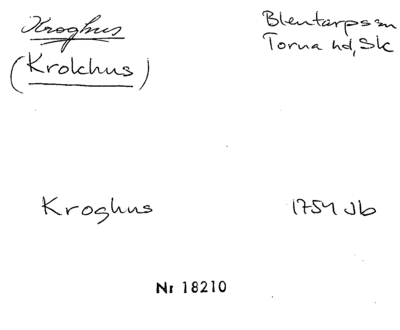 Kroghus
(Krokhus)
Blentarps sn
Torna hd, Sk
Kroghus
1754 Jb
Nr 18210